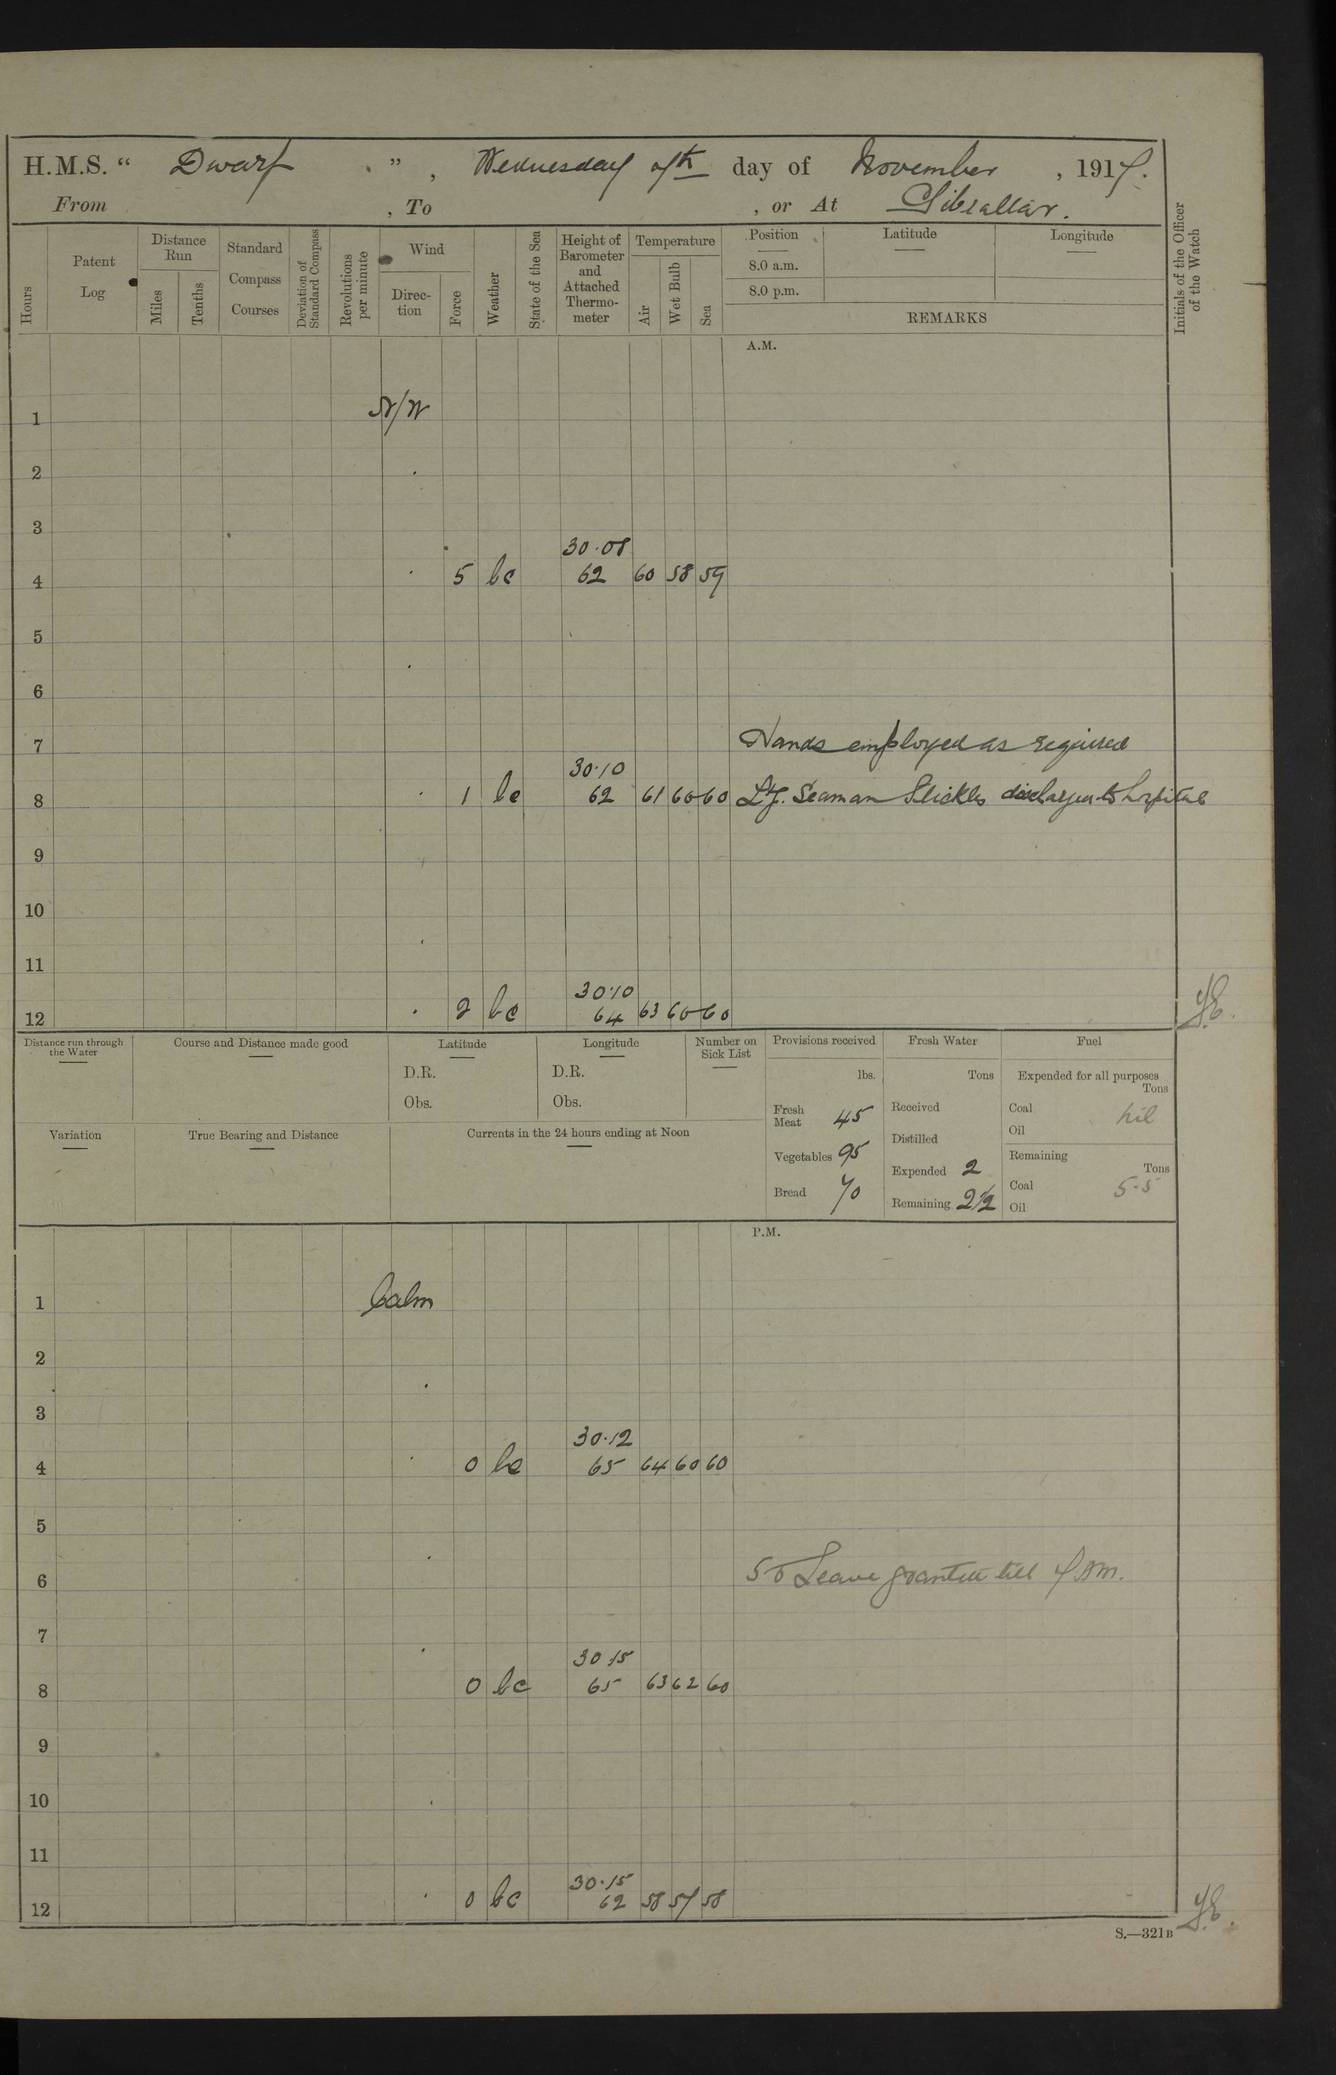 H.M.S. “ Dwarf ” , Wednesday 7th day of November , 1917.
From , To , or At Gibraltar.
Hours
Patent Log
Distance Run
Miles
Tenths
Standard Compass Courses
Deviation of Standard Compass
Revolutions per minute
Wind
Direction
Force
Weather
State of the Sea
Height of Barometer and Attached Thermometer
Temperature
Air
Wet Bulb
Sea
Position
8.0 a.m.
8.0 p.m.
Latitude
Longitude
REMARKS
Initials of the Officer of the Watch
A.M.
1 N/W
2
3
30.08
4 5 bc 62 60 58 59
5
6
7 Hands employed as required
30.10
8 1 bc 62 61 60 60 Lg. Seaman Stickles discharged to hospital
9
10
11
30.10
12 2 bc 64 63 60 60
Distance run through the Water
Course and Distance made good
Latitude
D.R.
Obs.
Longitude
D.R.
Obs.
Number on Sick List
Provisions received
lbs.
Fresh Meat 45
Vegetables 95
Bread 70
Fresh Water
Tons
Received
Distilled
Expended 2
Remaining 2½
Fuel
Expended for all purposes
Tons
Coal nil
Oil
Remaining
Tons
Coal 5.5
Oil
Variation
True Bearing and Distance
Currents in the 24 hours ending at Noon
P.M.
1 Calm
2
3
30.12
4 0 bc 65 64 60 60
5
6 5 0 Leave granted till 7 AM.
7
30.15
8 0 bc 65 63 62 60
9
10
11
30.15
12 0 bc 62 58 57 58
S.—321B